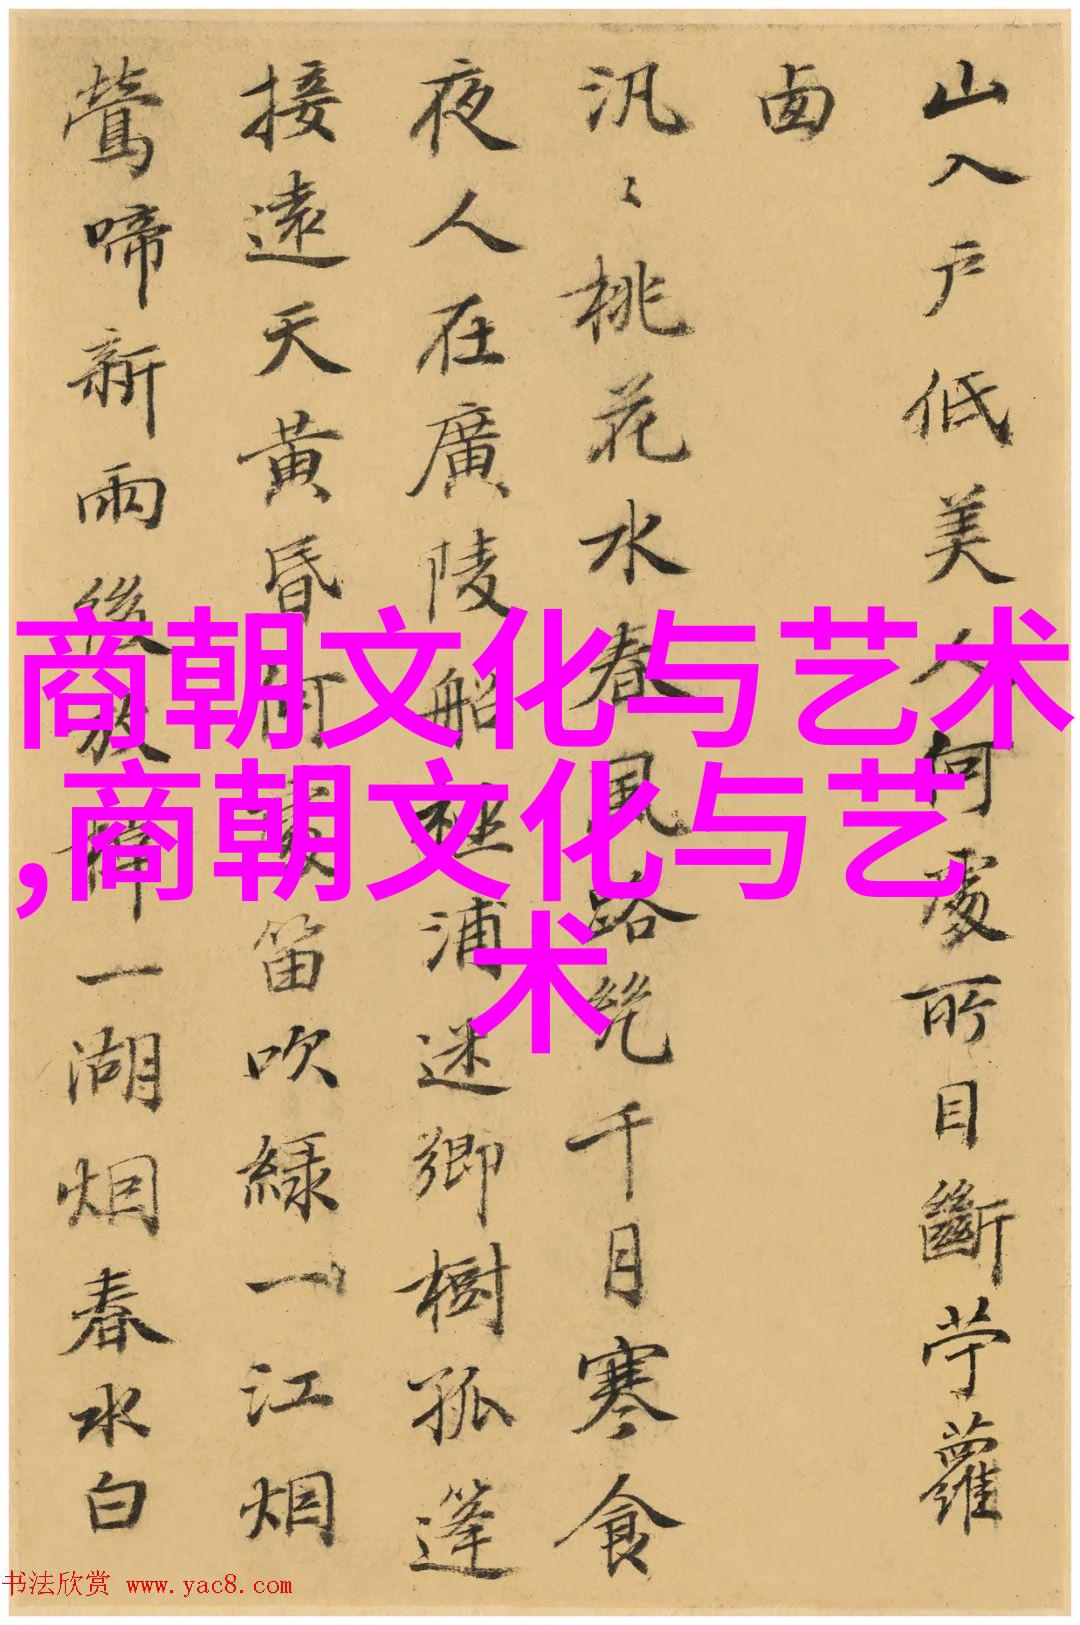 山入戶低美人何處所目斷苧蘿
西
汎〻桃花水春風路绝千月寒食
夜人在廣陵船極浦迷鄉樹孤篷
接遠天黃昏何處笛吹綠一江烟
鶯啼新雨後放棹一湖烟春水白
商朝文化与艺术
,商朝文化与艺
术
书法欣赏 www.yac8.com